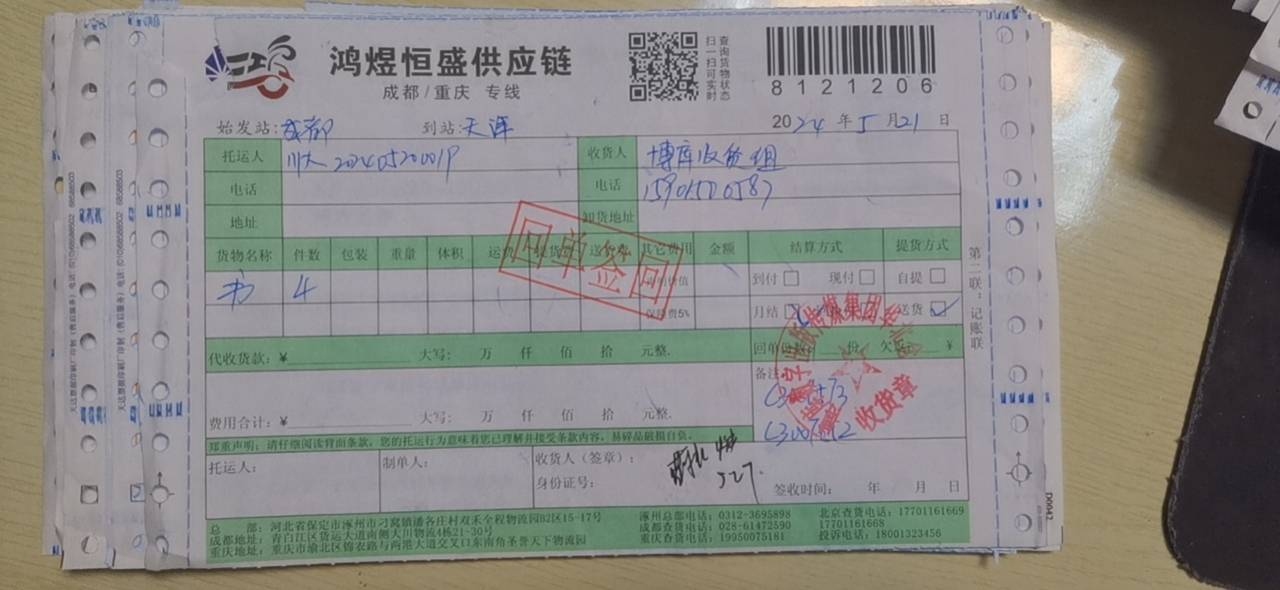 鸿煜恒盛供应链
成都/重庆 专线
扫一扫可实时
查询货物状态
8121206
始发站:成都 到站:天津 2024年5月21日
托运人 川大202405200019 收货人 博库收货组
电话 电话
地址 卸货地址
货物名称 件数 包装 重量 体积 运费 送货费 其它费用 金额 结算方式 提货方式
书 4 到付 现付 自提
保价费5% 月结 送货
代收货款:¥ 大写: 万 仟 佰 拾 元整.
回单 份 ¥
备注
费用合计:¥ 大写: 万 仟 佰 拾 元整.
郑重声明:请仔细阅读背面条款,您的托运行为意味着您已理解并接受条款内容,易碎品破损自负。
托运人: 制单人: 收货人(签章):
身份证号: 527. 签收时间: 年 月 日
回单签回
收货章
第二联:记账联
总 部:河北省保定市涿州市刁窝镇潘各庄村双禾全程物流园B2区15-17号
成都地址:青白江区货运大道南侧大川物流4栋21-30号
重庆地址:重庆市渝北区锦衣路与两港大道交叉口东南角圣誉天下物流园
涿州总部电话:0312-3695898
成都查货电话:028-61472590
重庆查货电话:19950075181
北京查货电话:17701161669
17701161668
投诉电话:18001323456
D0042